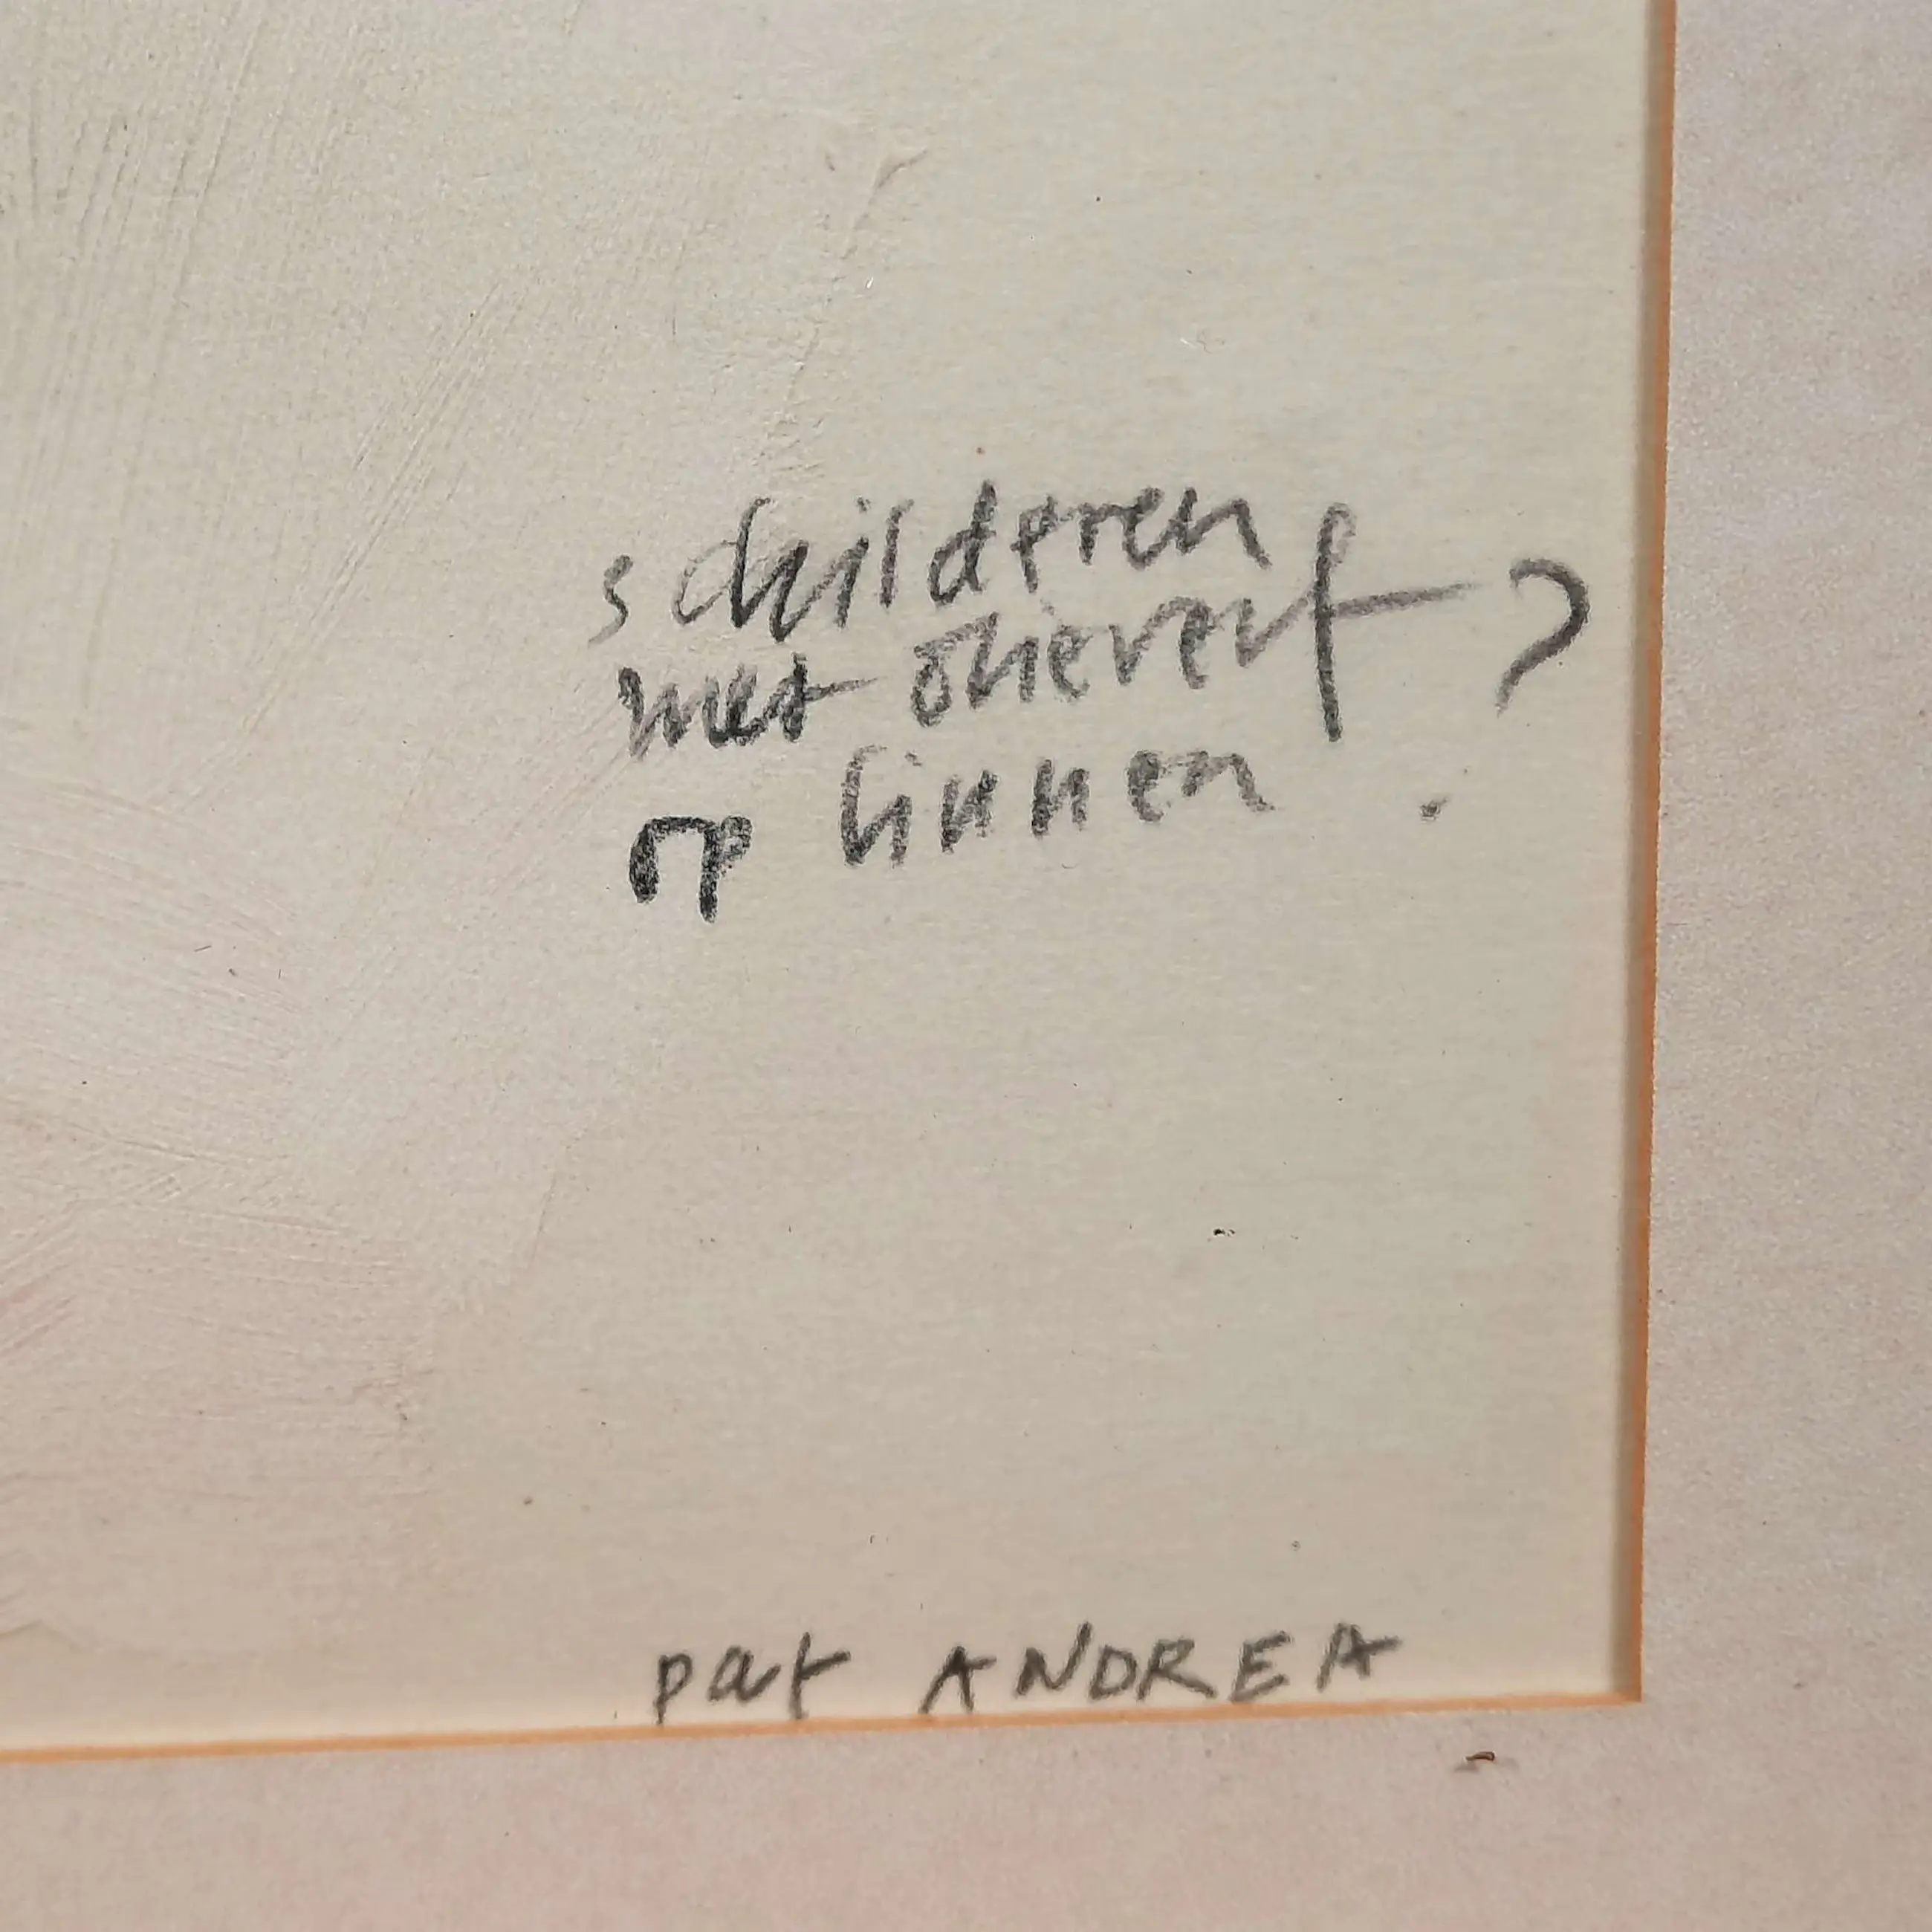 schilderen
met olieverf ?
op linnen
pat ANDREA